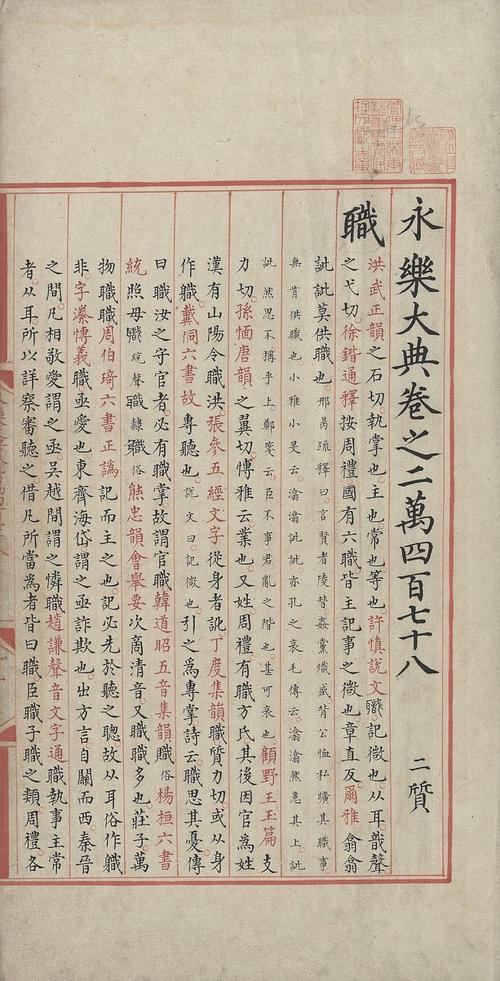 永樂大典卷之二萬四百七十八　二質
職
洪武正韻之石切執掌也主也常也等也許慎說文職記微也从耳戠聲
之弋切徐鍇通釋按周禮國有六職皆主記事之微也章直反爾雅翕翕
訿訿莫供職也邢昺疏釋曰言賢者陵替姦黨熾盛背公恤私曠其職事
無肯供職也小雅小旻云潝潝訿訿亦孔之哀毛傳云潝潝然患其上訿
訿然思不稱乎上鄭箋云臣不事君亂之階也甚可哀也顧野王玉篇支
力切孫愐唐韻之翼切博雅云業也又姓周禮有職方氏其後因官爲姓
漢有山陽令職洪張參五經文字從身者訛丁度集韻職質力切或从身
作軄戴侗六書故專聽也說文曰記微也引之爲專掌詩云職思其憂傳
曰職汝之守官者必有職掌故謂官職韓道昭五音集韻職俗楊桓六書
統照母職統聲職隸軄俗熊忠韻會舉要次商清音又職職多也莊子萬
物職職周伯琦六書正譌記而主之也記必先於聽之聰故从耳俗作軄
非字瀿博義職亟愛也東齊海岱謂之亟詐欺也出方言自關而西秦晉
之間凡相敬愛謂之亟吳越間謂之憐職趙謙聲音文字通職執事主常
者从耳所以詳察審聽之借凡所當爲者皆曰職臣職子職之類周禮各